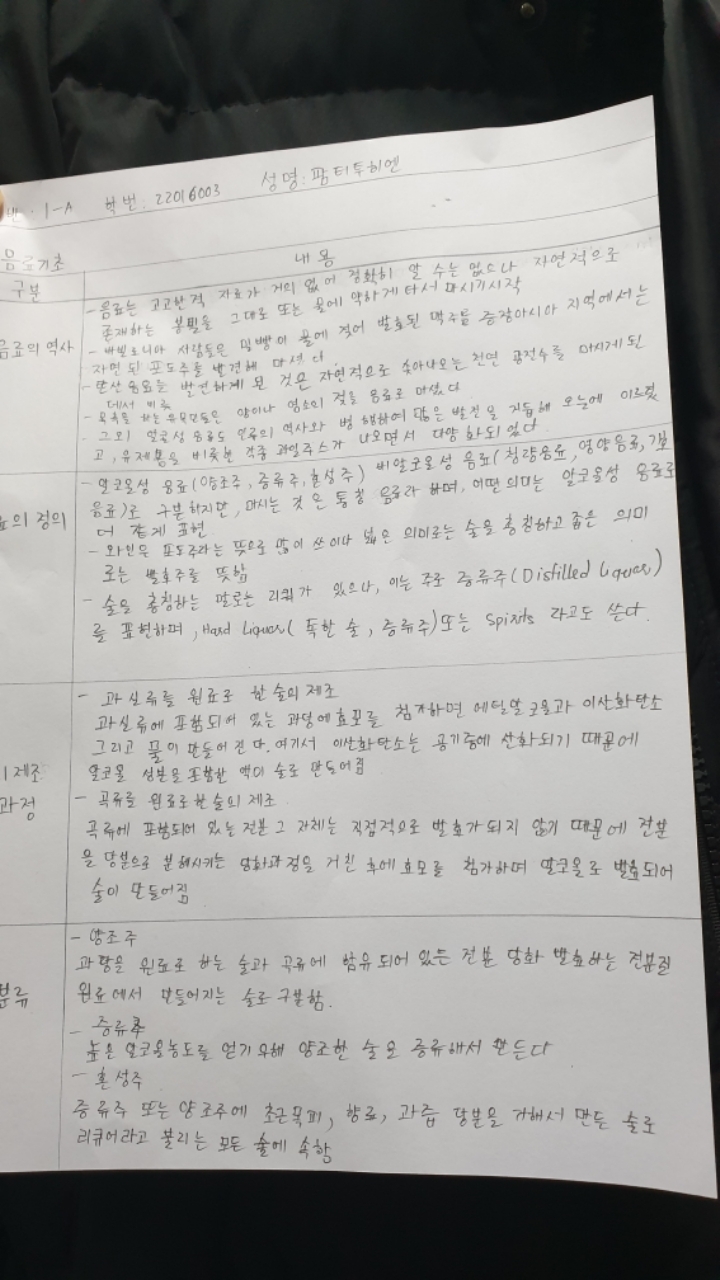 반 : 1-A 학번 : 22016003 성명 : 팜티투히엔
음료기초
구분
내용
음료의 역사
- 음료는 고고학적 자료가 거의 없어 정확히 알 수는 없으나 자연적으로
존재하는 봉밀을 그대로 또는 물에 약하게 타서 마시기 시작
- 바빌로니아 사람들은 밀빵이 물에 젖어 발효된 맥주를 중앙아시아 지역에서는
자연 된 포도주를 발견해 마셨다
- 탄산음료를 발견하게 된 것은 자연적으로 솟아나오는 천연 광천수를 마시게 된
데서 비롯
- 목축을 하는 유목민들은 양이나 염소의 젖을 음료로 마셨다
- 그외 알코성 음료도 인류의 역사와 병행하여 많은 발전을 거듭해 오늘에 이르렀
고, 유제품을 비롯한 각종 과일주스가 나오면서 다양화되었다
의 정의
- 알코올성 음료(양조주, 증류주, 혼성주) 비알코올성 음료(청량음료, 영양음료, 기호
음료)로 구분하지만, 마시는 것은 통칭 음료라 하며, 어떤 의미는 알코올성 음료로
더 짙게 표현
- 와인은 포도주라는 뜻으로 많이 쓰이나 넓은 의미로는 술을 총칭하고 좁은 의미
로는 발효주를 뜻함
- 술을 총칭하는 말로는 리쿼가 있으나, 이는 주로 증류주(Distilled Liquor)
를 표현하며, Hard Liquor( 독한 술, 증류주)또는 Spirits 라고도 쓴다.
제조
과정
- 과실류를 원료로 한 술의 제조
과실류에 포함되어 있는 과당에 효모를 첨가하면 에틸알코올과 이산화탄소
그리고 물이 만들어 진다. 여기서 이산화탄소는 공기중에 산화되기 때문에
알코올 성분을 포함한 액이 술로 만들어짐
- 곡류를 원료로한 술의 제조
곡류에 포함되어 있는 전분 그 자체는 직접적으로 발효가 되지 않기 때문에 전분
을 당분으로 분해시키는 당화과정을 거친 후에 효모를 첨가하며 알코올로 발효되어
술이 만들어짐
분류
- 양조주
과당을 원료로 하는 술과 곡류에 함유 되어 있든 전분 당화 발효하는 전분질
원료에서 만들어지는 술로 구분함.
- 증류주
높은 알코올농도를 얻기 위해 양조한 술을 증류해서 만든다
- 혼성주
증류주 또는 양조주에 초근목피, 향료, 과즙 당분을 가해서 만든 술로
리큐어라고 불리는 모든 술에 속함